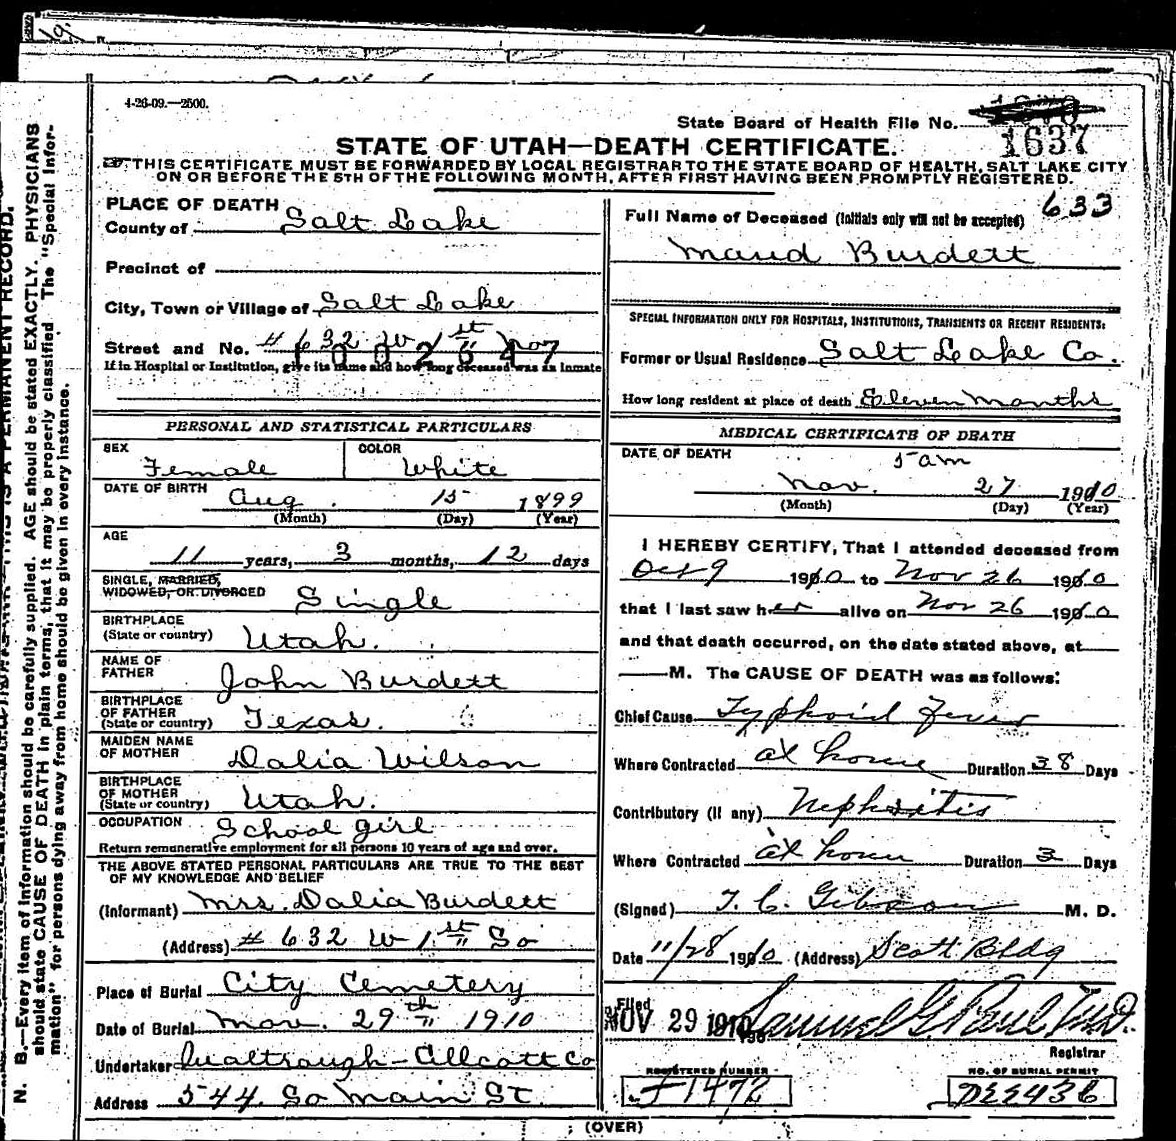 4-26-09.—2500.
State Board of Health File No. 1637
STATE OF UTAH—DEATH CERTIFICATE.
THIS CERTIFICATE MUST BE FORWARDED BY LOCAL REGISTRAR TO THE STATE BOARD OF HEALTH, SALT LAKE CITY
ON OR BEFORE THE 5TH OF THE FOLLOWING MONTH, AFTER FIRST HAVING BEEN PROMPTLY REGISTERED.
PLACE OF DEATH
County of Salt Lake
Precinct of
City, Town or Village of Salt Lake
Street and No. # 632 W 1st
1002647
If in Hospital or Institution, give its name and how long deceased was an inmate
PERSONAL AND STATISTICAL PARTICULARS
SEX Female COLOR White
DATE OF BIRTH Aug. 15 1899
(Month) (Day) (Year)
AGE
11 years, 3 months, 12 days
SINGLE, MARRIED,
WIDOWED, OR DIVORCED Single
BIRTHPLACE
(State or country) Utah.
NAME OF
FATHER John Burdett
BIRTHPLACE
OF FATHER
(State or country) Texas.
MAIDEN NAME
OF MOTHER Dalia Wilson
BIRTHPLACE
OF MOTHER
(State or country) Utah.
OCCUPATION School girl
Return remunerative employment for all persons 10 years of age and over.
THE ABOVE STATED PERSONAL PARTICULARS ARE TRUE TO THE BEST
OF MY KNOWLEDGE AND BELIEF
(Informant) Mrs. Dalia Burdett
(Address) # 632 W 1st So
Place of Burial City Cemetery
Date of Burial Nov. 29th 1910
Undertaker
Address 544 So Main St.
633
Full Name of Deceased (Initials only will not be accepted)
Maud Burdett
SPECIAL INFORMATION ONLY FOR HOSPITALS, INSTITUTIONS, TRANSIENTS OR RECENT RESIDENTS:
Former or Usual Residence Salt Lake Co.
How long resident at place of death Eleven Months
MEDICAL CERTIFICATE OF DEATH
DATE OF DEATH 5 am
Nov. 27 1910
(Month) (Day) (Year)
I HEREBY CERTIFY, That I attended deceased from
Oct 9 1910 to Nov 26 1910
that I last saw her alive on Nov 26 1910
and that death occurred, on the date stated above, at
M. The CAUSE OF DEATH was as follows:
Chief Cause Typhoid Fever
Where Contracted at home Duration 38 Days
Contributory (if any) Nephritis
Where Contracted at home Duration 3 Days
(Signed) T. C. Gibson M. D.
Date 11/28 1910 (Address) Scott Bldg
Filed
NOV 29 1910 Samuel G. Paul M.D.
Registrar
REGISTERED NUMBER
1472
NO. OF BURIAL PERMIT
(OVER)
N. B.—Every item of information should be carefully supplied. AGE should be stated EXACTLY. PHYSICIANS
should state CAUSE OF DEATH in plain terms, that it may be properly classified. The "Special Infor-
mation" for persons dying away from home should be given in every instance.